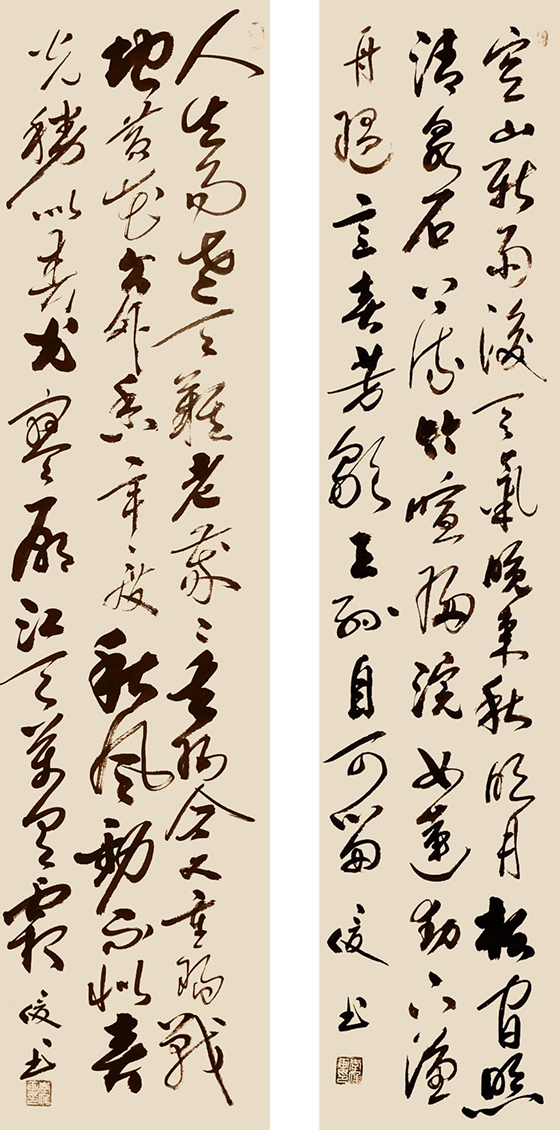 空山新雨後天氣晚來秋明月松間照
清泉石上流竹喧歸浣女蓮動下漁
舟隨意春芳歇王孫自可留 俊书
人生易老天難老歲〻重陽今又重陽戰
地黄花分外香一年一度秋風勁不似春
光勝似春光寥廓江天萬里霜 俊书